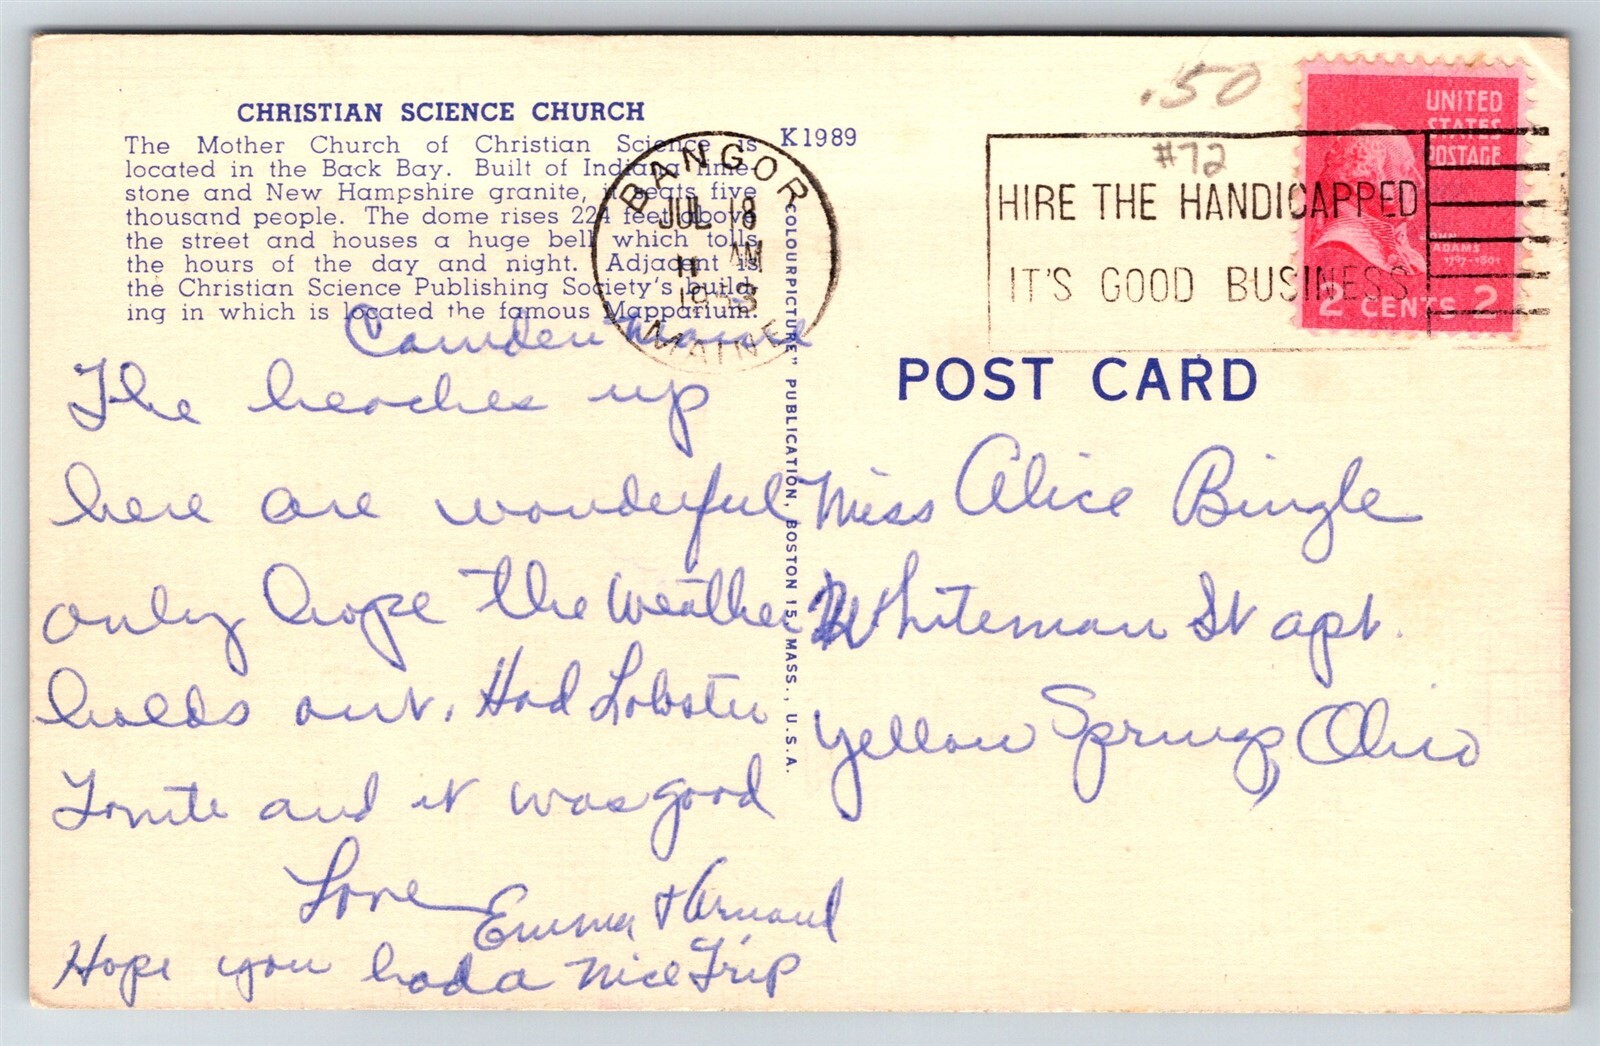 CHRISTIAN SCIENCE CHURCH
The Mother Church of Christian Science is
located in the Back Bay. Built of Indiana lime-
stone and New Hampshire granite, it seats five
thousand people. The dome rises 224 feet above
the street and houses a huge bell which tolls
the hours of the day and night. Adjacent is
the Christian Science Publishing Society's build-
ing in which is located the famous Mapparium.
K1989
BANGOR
JUL 18
11 AM
1953
MAINE
.50
#72
HIRE THE HANDICAPPED
IT'S GOOD BUSINESS
UNITED
STATES
POSTAGE
JOHN
ADAMS
1797-1801
2 CENTS 2
"COLOURPICTURE" PUBLICATION, BOSTON 15, MASS., U.S.A.
POST CARD
Camden Maine
The beaches up
here are wonderful
only hope the weather
holds out. Had Lobster
Tonite and it was good
Love
Emma & Armand
Hope you had a nice Trip
Miss Alice Bingle
Whiteman St apt.
Yellow Springs, Ohio